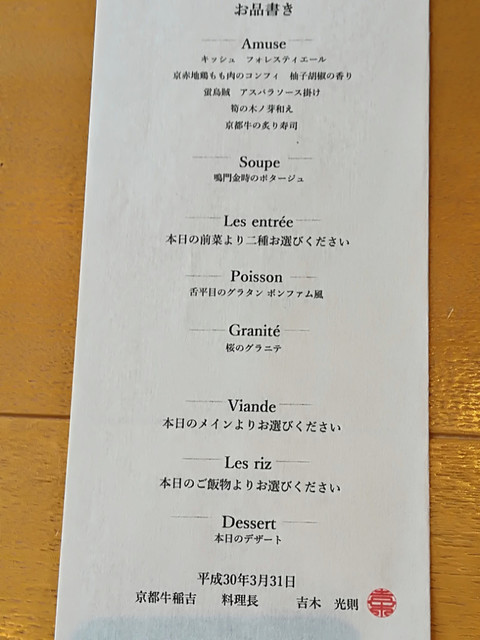 お品書き
Amuse
キッシュ　フォレスティエール
京赤地鶏もも肉のコンフィ　柚子胡椒の香り
蛍烏賊　アスパラソース掛け
筍の木ノ芽和え
京都牛の炙り寿司
Soupe
鳴門金時のポタージュ
Les entrée
本日の前菜より二種お選びください
Poisson
舌平目のグラタン ボンファム風
Granité
桜のグラニテ
Viande
本日のメインよりお選びください
Les riz
本日のご飯物よりお選びください
Dessert
本日のデザート
平成30年3月31日
京都牛稲吉　　料理長　　　吉木　光則